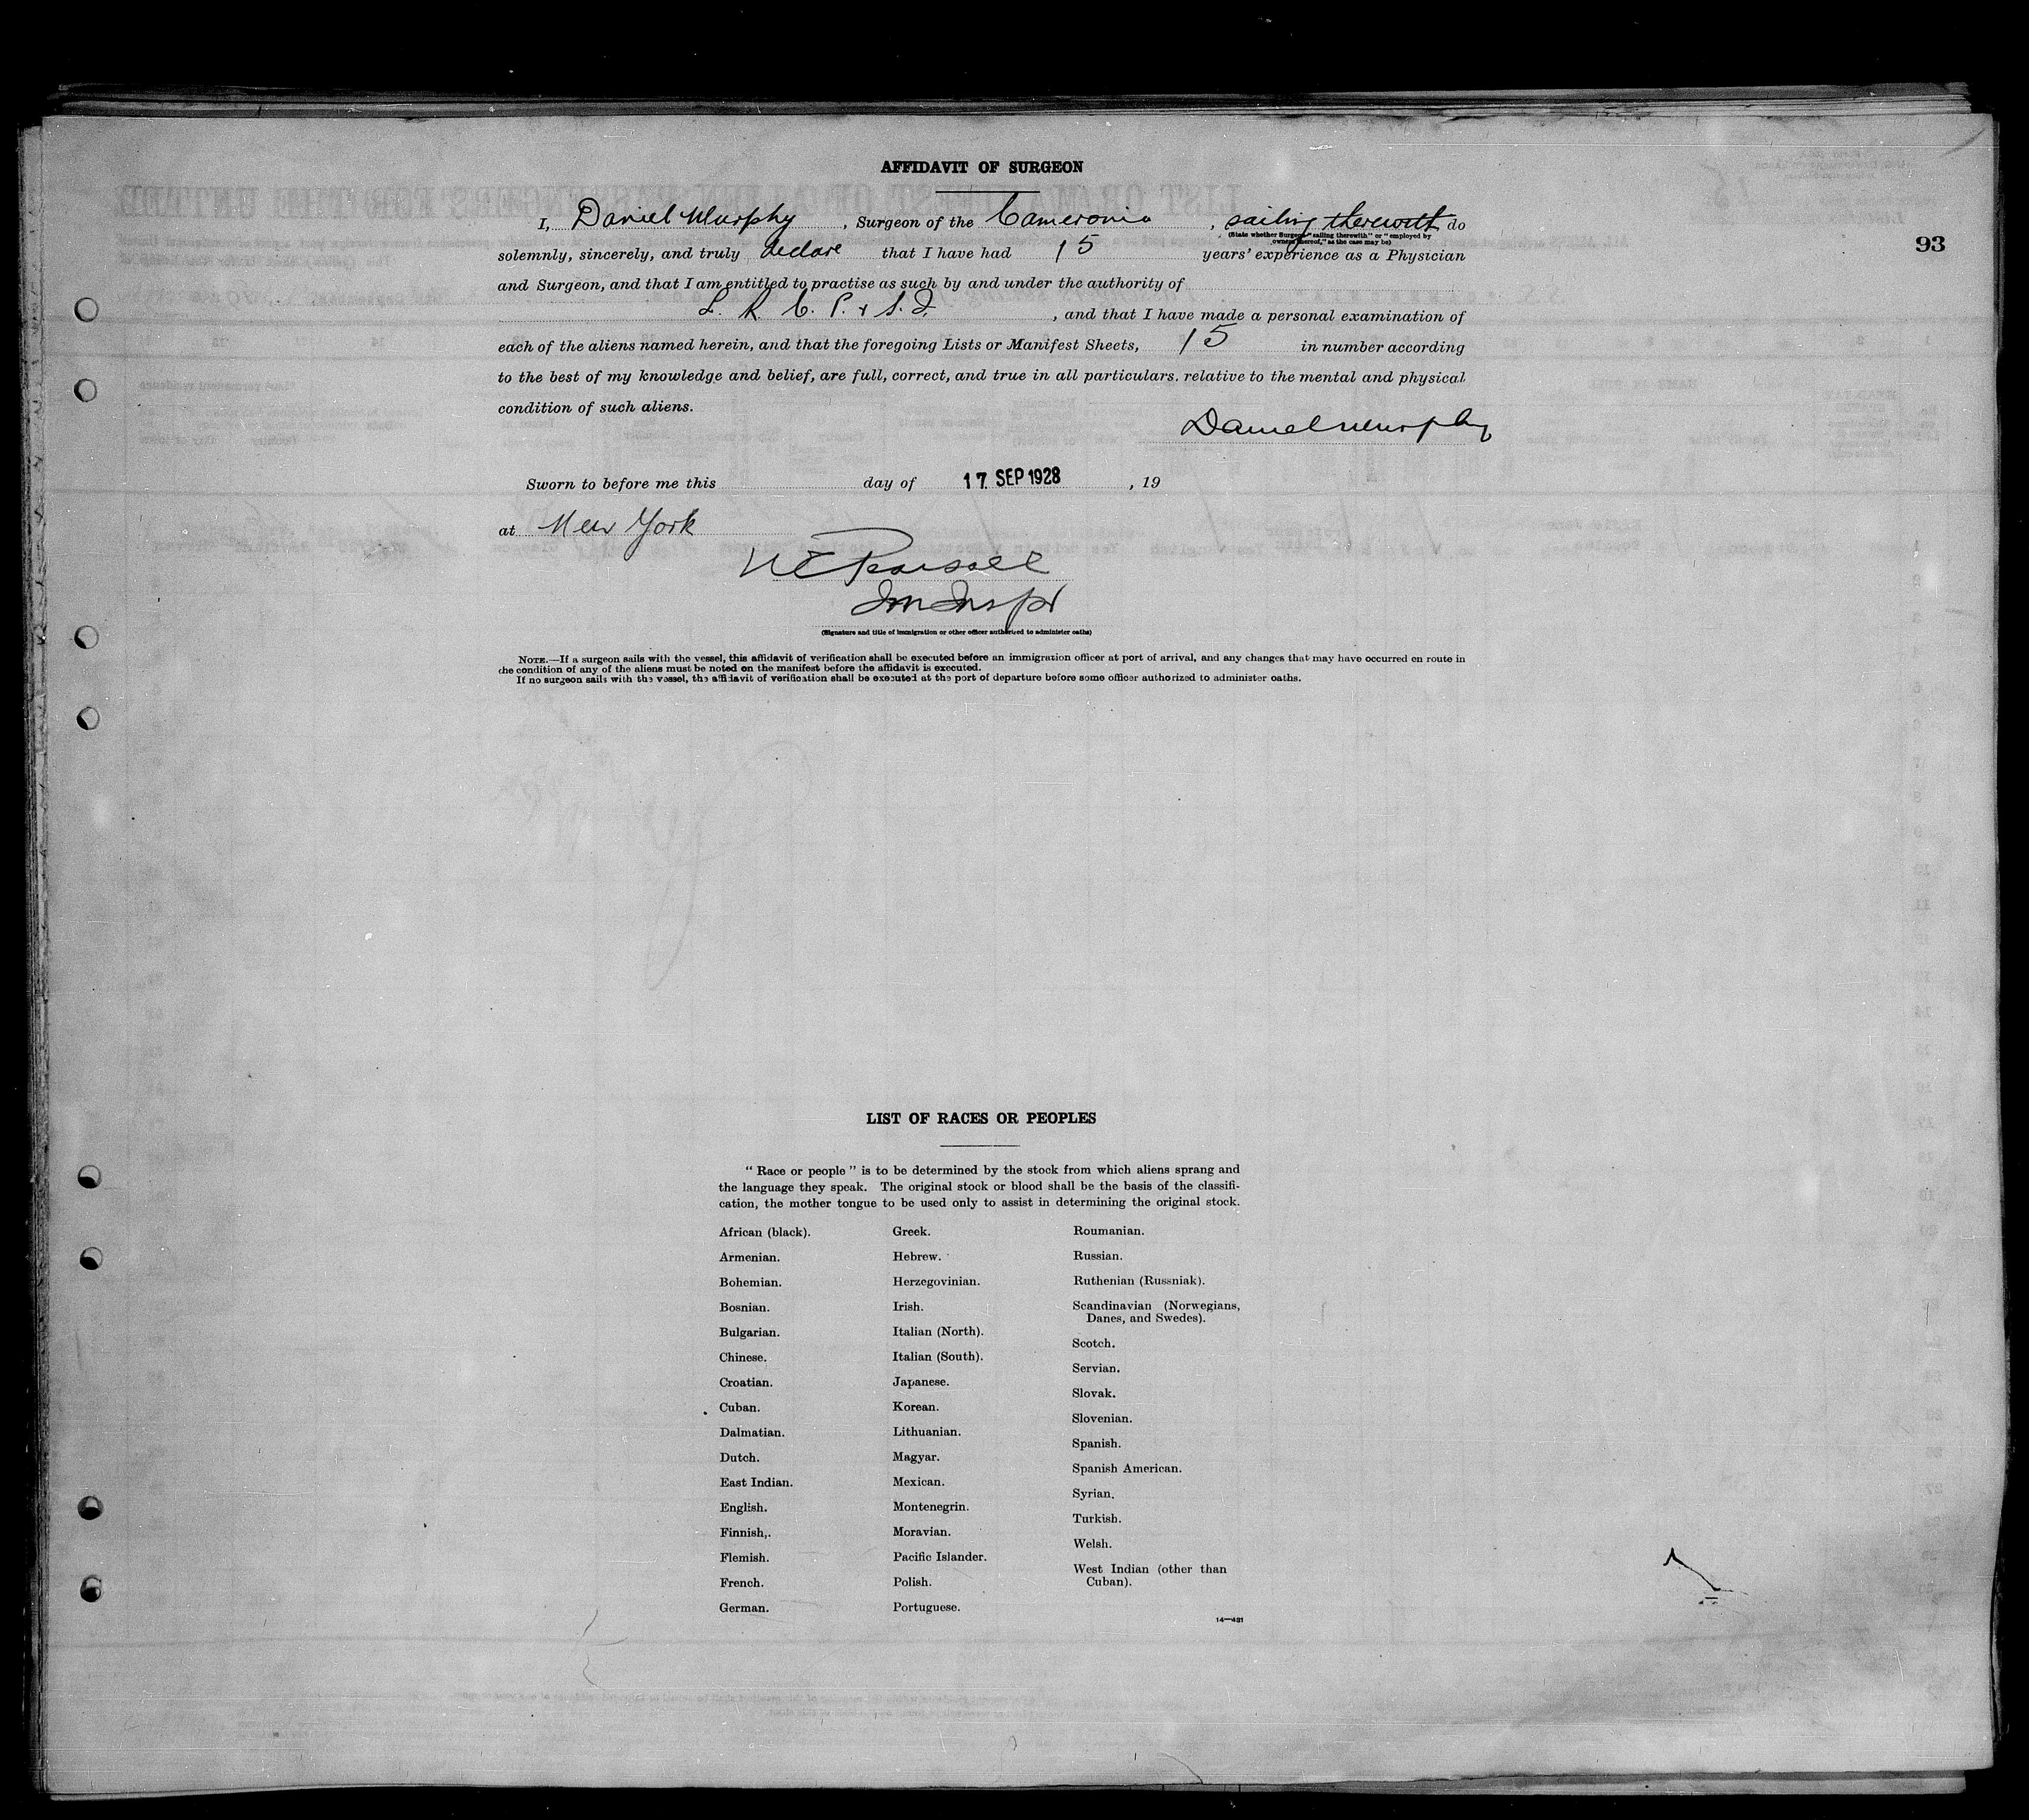 AFFIDAVIT OF SURGEON
93
I, Daniel Murphy , Surgeon of the Cameronia , sailing therewith do
(State whether Surgeon "sailing therewith" or "employed by
owners thereof," as the case may be)
solemnly, sincerely, and truly declare that I have had 15 years' experience as a Physician
and Surgeon, and that I am entitled to practise as such by and under the authority of
L. R. C. P. & S. I. , and that I have made a personal examination of
each of the aliens named herein, and that the foregoing Lists or Manifest Sheets, 15 in number according
to the best of my knowledge and belief, are full, correct, and true in all particulars. relative to the mental and physical
condition of such aliens.
Daniel Murphy
Sworn to before me this day of 17 SEP 1928 , 19
at New York
Pearsall
Im Inspr
(Signature and title of immigration or other officer authorized to administer oaths)
NOTE.—If a surgeon sails with the vessel, this affidavit of verification shall be executed before an immigration officer at port of arrival, and any changes that may have occurred en route in
the condition of any of the aliens must be noted on the manifest before the affidavit is executed.
If no surgeon sails with the vessel, the affidavit of verification shall be executed at the port of departure before some officer authorized to administer oaths.
LIST OF RACES OR PEOPLES
" Race or people " is to be determined by the stock from which aliens sprang and
the language they speak. The original stock or blood shall be the basis of the classifi-
cation, the mother tongue to be used only to assist in determining the original stock.
African (black).
Armenian.
Bohemian.
Bosnian.
Bulgarian.
Chinese.
Croatian.
Cuban.
Dalmatian.
Dutch.
East Indian.
English.
Finnish,.
Flemish.
French.
German.
Greek.
Hebrew.
Herzegovinian.
Irish.
Italian (North).
Italian (South).
Japanese.
Korean.
Lithuanian.
Magyar.
Mexican.
Montenegrin.
Moravian.
Pacific Islander.
Polish.
Portuguese.
Roumanian.
Russian.
Ruthenian (Russniak).
Scandinavian (Norwegians,
Danes, and Swedes).
Scotch.
Servian.
Slovak.
Slovenian.
Spanish.
Spanish American.
Syrian.
Turkish.
Welsh.
West Indian (other than
Cuban).
14—431